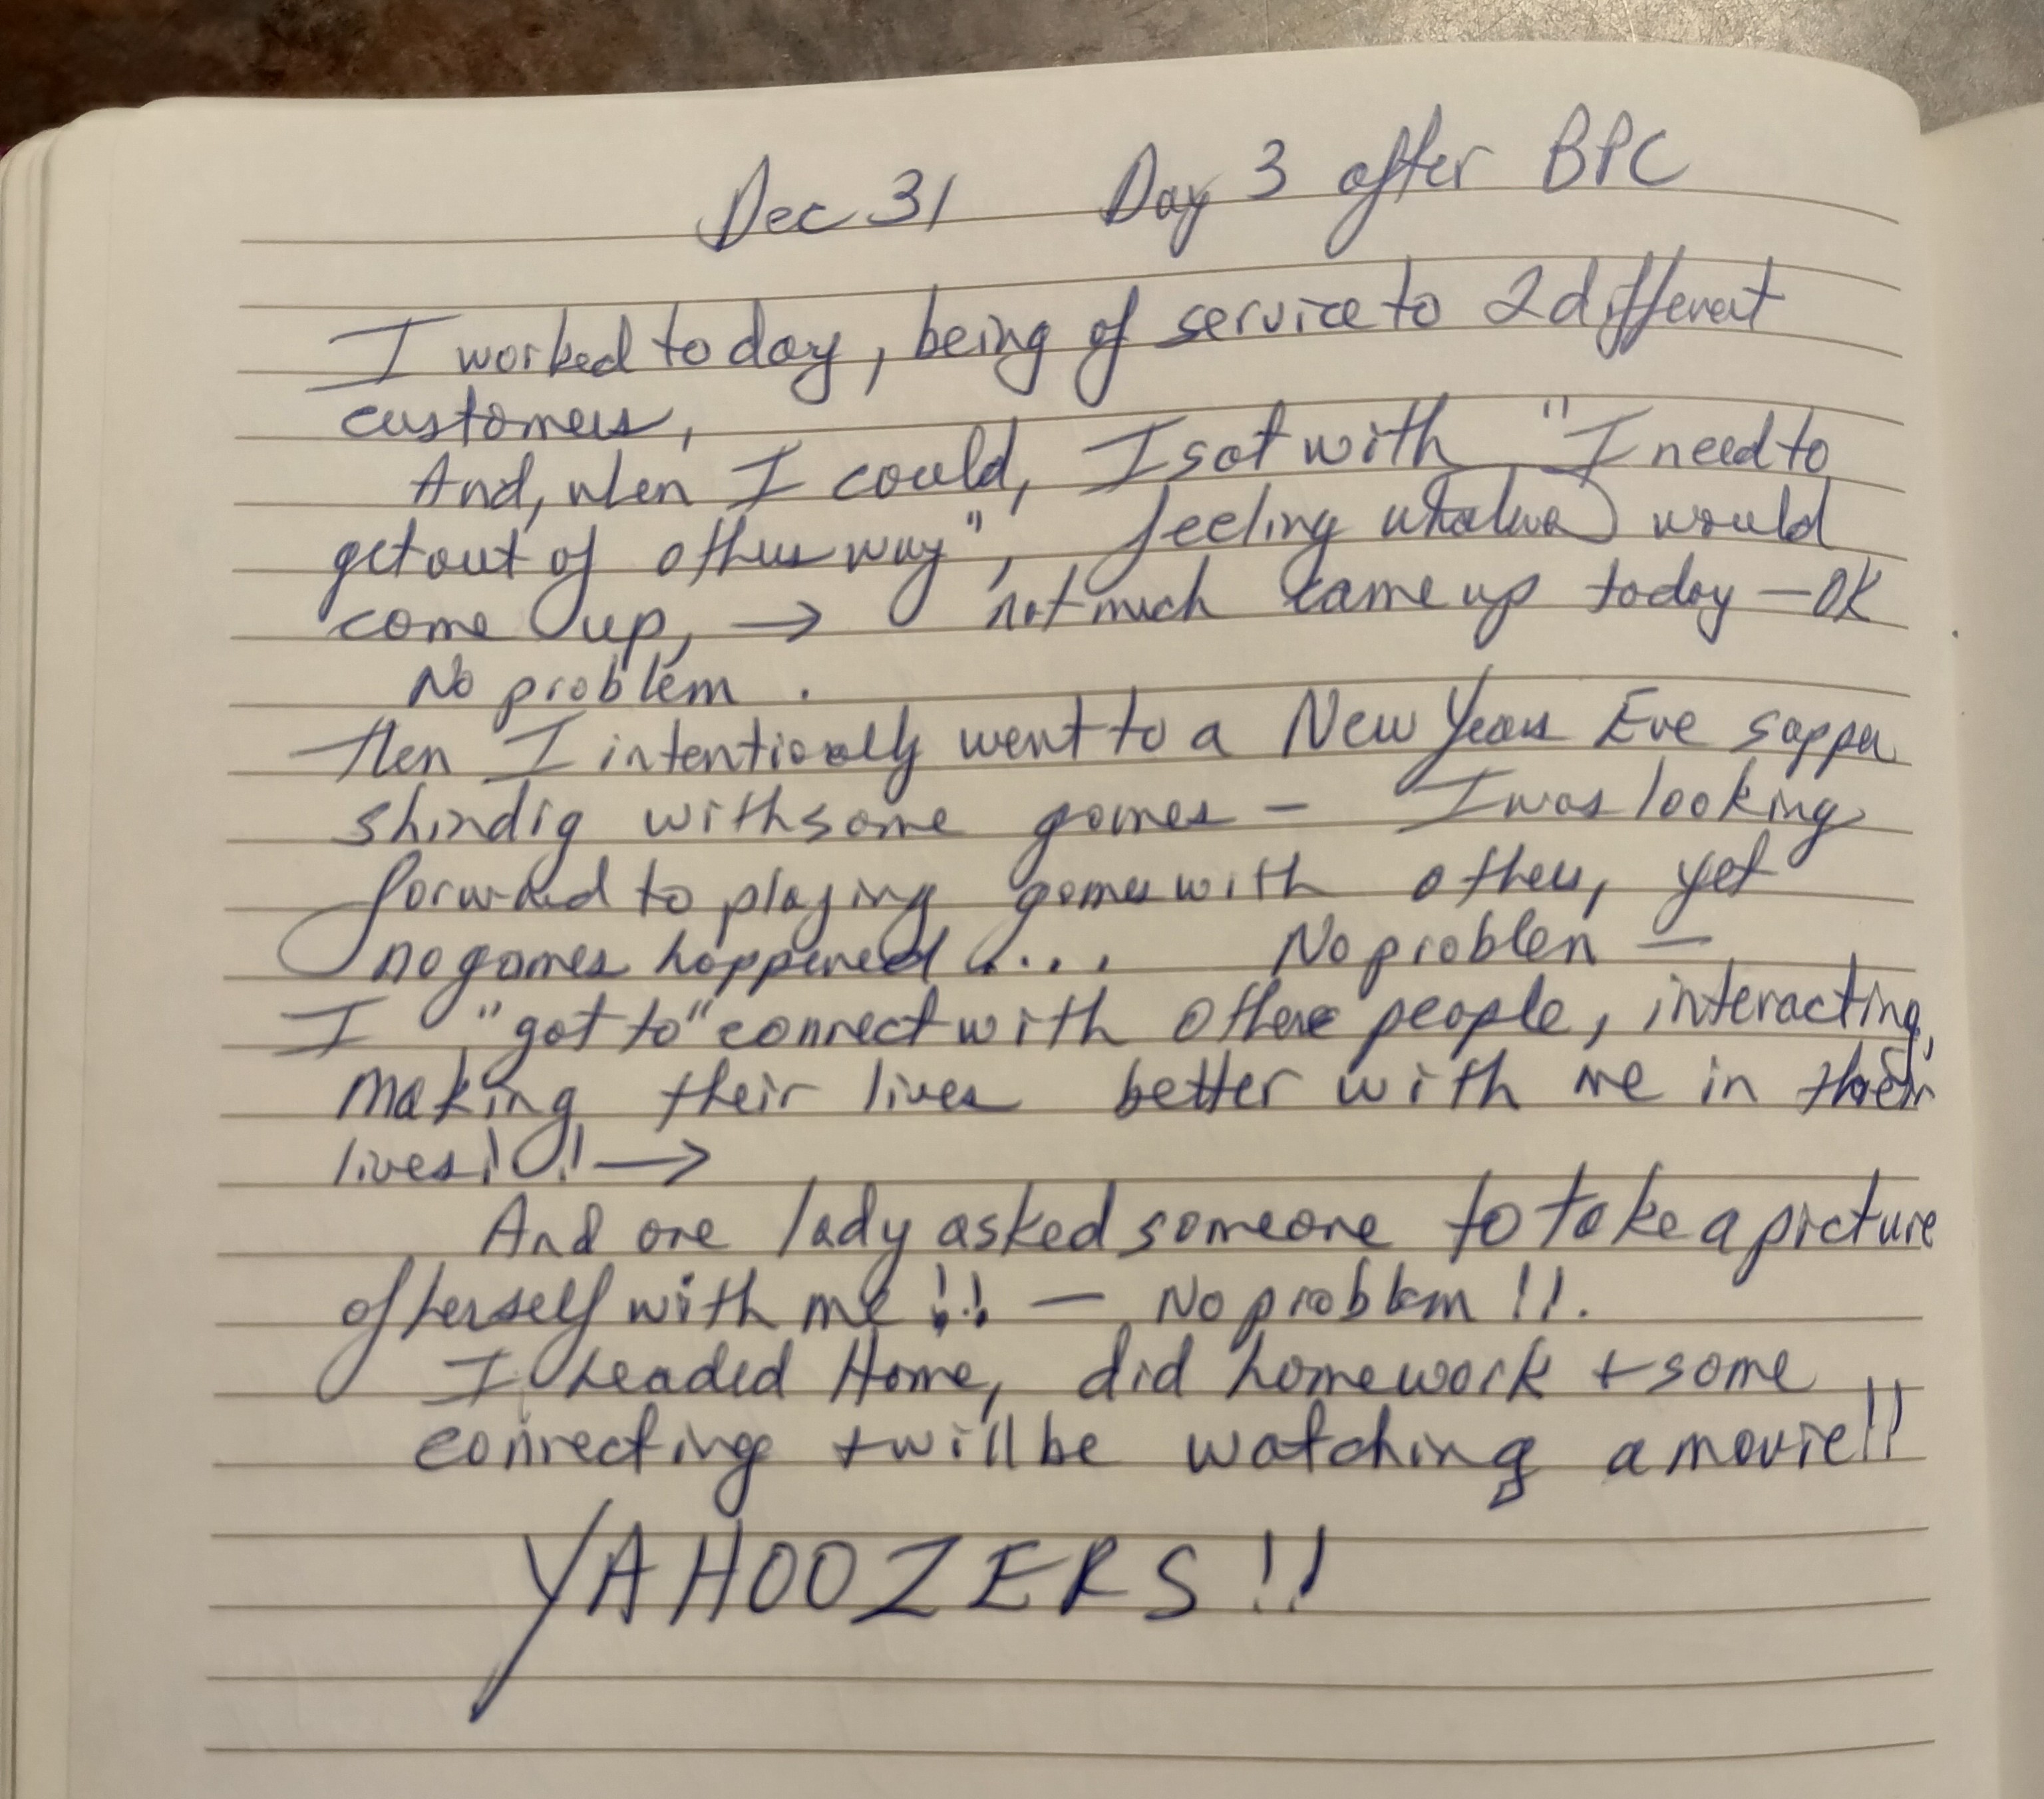 Dec 31 Day 3 after BPC
I worked today, being of service to 2 different
customers,
And, when I could, I sat with "I need to
get out of others way", feeling whatever would
come up, → not much came up today — OK
No problem.
then I intentionally went to a New Years Eve supper
shindig with some games — I was looking
forward to playing games with others, yet
no games happened.... No problem —
I "got to" connect with other people, interacting,
making their lives better with me in their
lives!!! →
And one lady asked someone to take a picture
of herself with me!!! — No problem!!.
I headed Home, did homework + some
connecting + will be watching a movie!!
YAHOOZERS!!